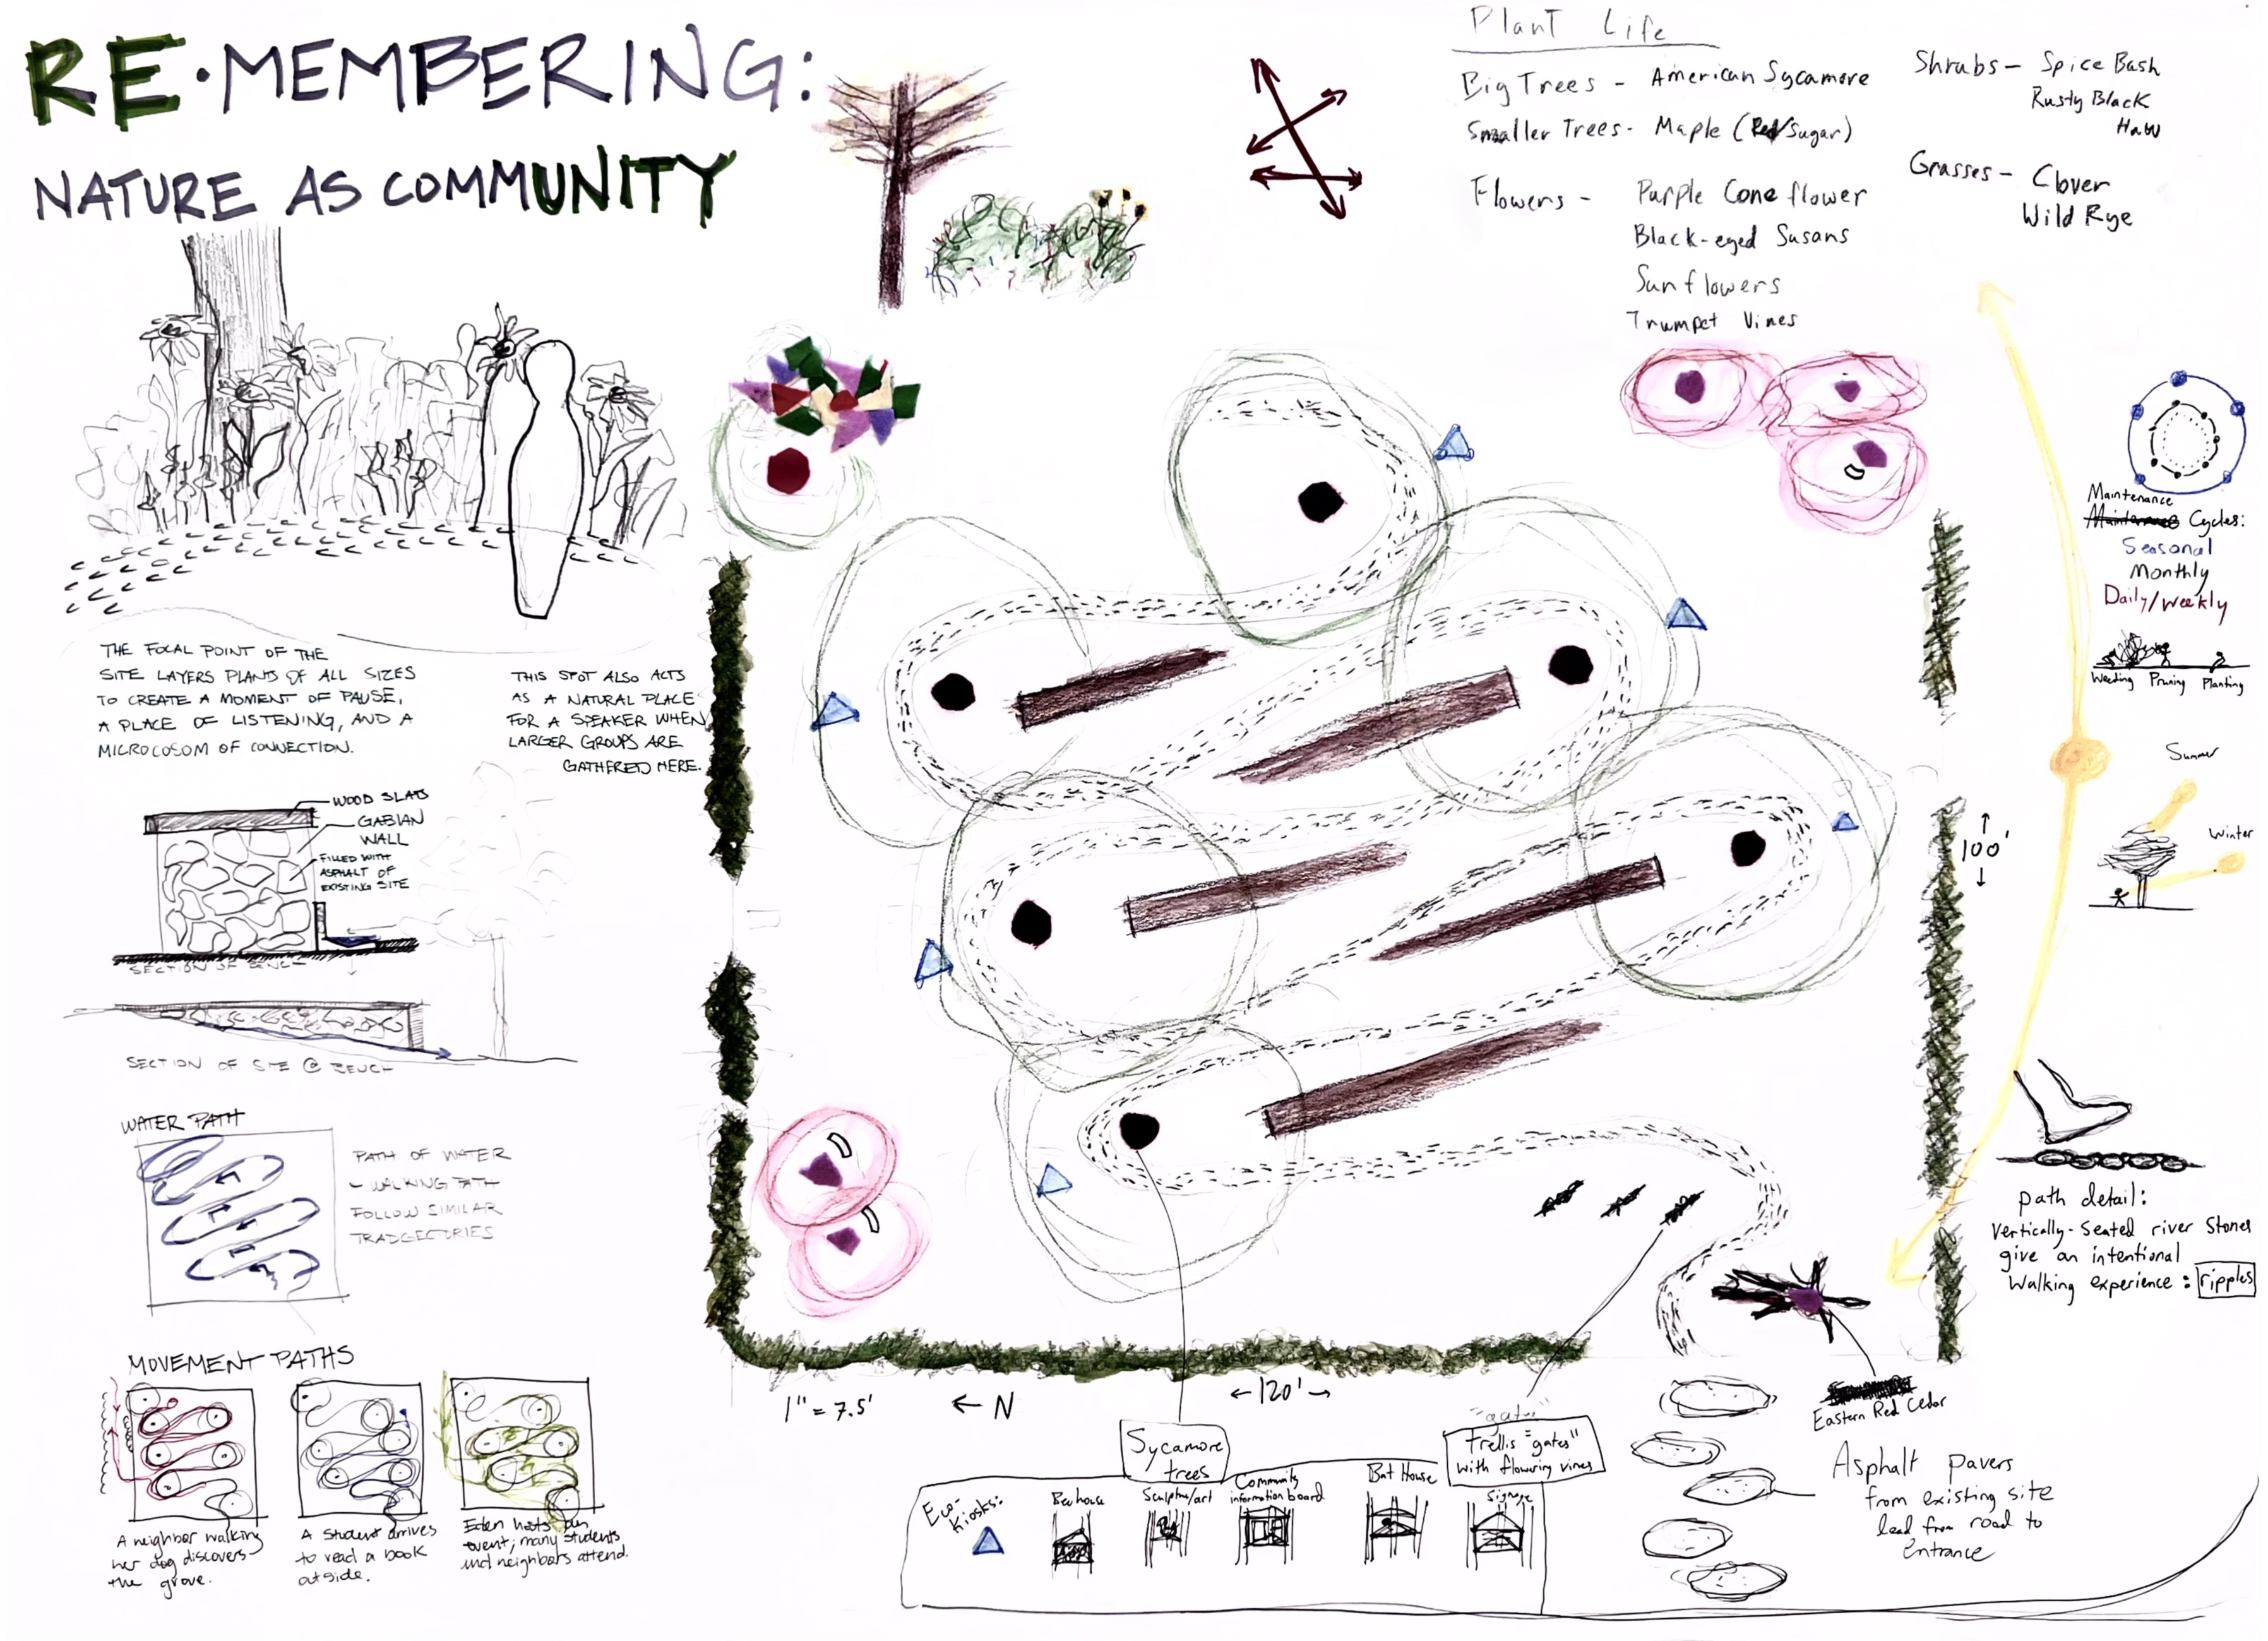 RE·MEMBERING:
NATURE AS COMMUNITY
Plant Life
Big Trees - American Sycamore
Smaller Trees - Maple (Red/Sugar)
Flowers - Purple Coneflower
Black-eyed Susans
Sunflowers
Trumpet Vines
Shrubs - Spice Bash
Rusty Black
Haw
Grasses - Clover
Wild Rye
THE FOCAL POINT OF THE
SITE LAYERS PLANTS OF ALL SIZES
TO CREATE A MOMENT OF PAUSE,
A PLACE OF LISTENING, AND A
MICROCOSOM OF CONNECTION.
THIS SPOT ALSO ACTS
AS A NATURAL PLACE
FOR A SPEAKER WHEN
LARGER GROUPS ARE
GATHERED HERE.
WOOD SLATS
GABIAN
WALL
FILLED WITH
ASPHALT OF
EXISTING SITE
SECTION OF BENCH
SECTION OF SITE @ BENCH
WATER PATH
PATH OF WATER
WALKING PATH
FOLLOW SIMILAR
TRADGECTORIES
MOVEMENT PATHS
A neighbor walking
her dog discovers
the grove.
A student arrives
to read a book
outside.
Eden hosts an
event; many students
and neighbors attend.
Maintenance
Maintenance Cycles:
Seasonal
Monthly
Daily/Weekly
Weeding Pruning Planting
Summer
Winter
100'
path detail:
Vertically-seated river stones
give an intentional
walking experience: ripples
1" = 7.5'
← N
←120'→
Sycamore
trees
"gates"
Trellis "gates"
with flowering vines
Eco-
kiosks:
Bee house
Sculpture/art
Community
information board
Bat House
Signage
Eastern Red Cedar
Asphalt pavers
from existing site
lead from road to
entrance